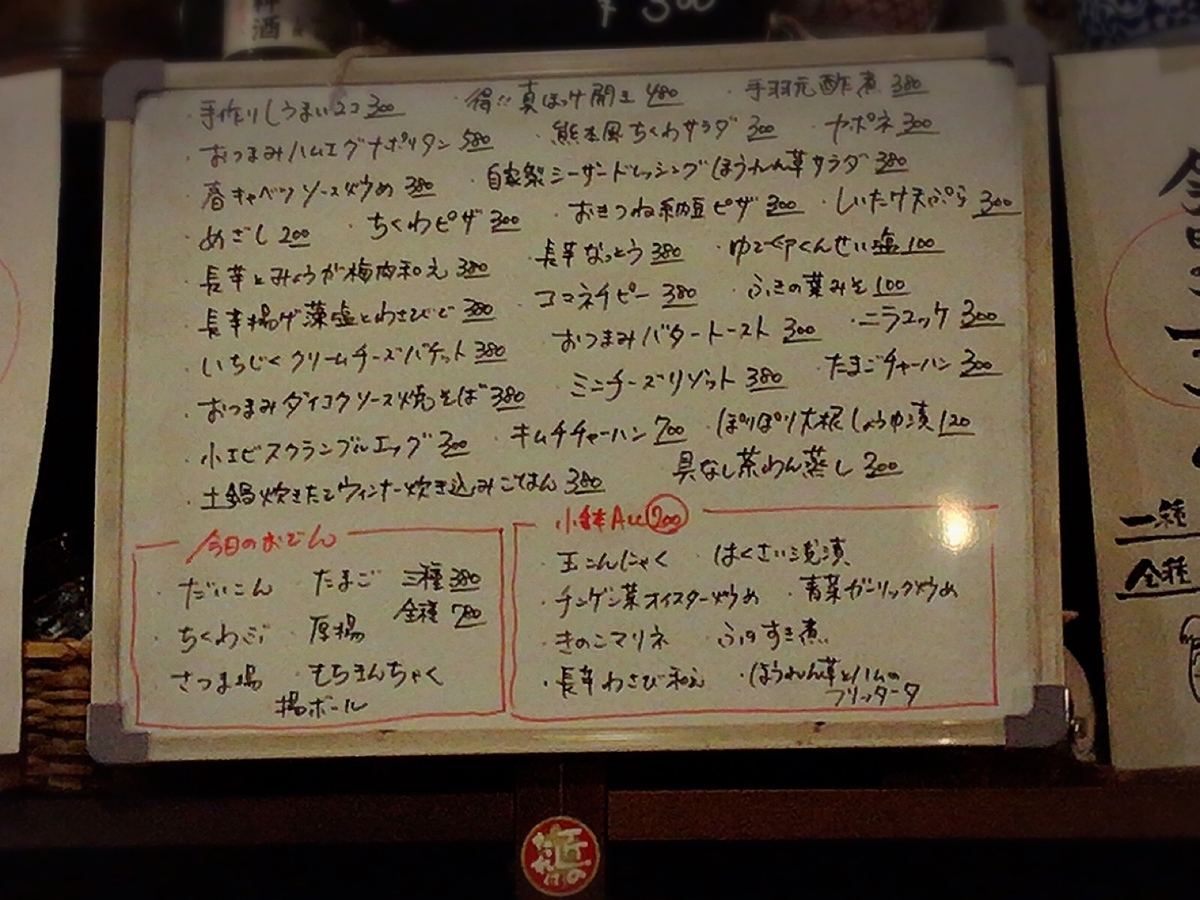 酒
300
手作りしうまい2コ 300 ・得!!真ほっけ開き 480 ・手羽元酢煮 380
・おつまみハムエグナポリタン 580 ・熊本風ちくわサラダ 300 ・ヤポネ 300
・春キャベツソース炒め 380 ・自家製シーザードレッシングほうれん草サラダ 380
・めざし 200 ・ちくわピザ 300 ・おきつね納豆ピザ 300 ・しいたけ天ぷら 300
・長芋とみょうが梅肉和え 380 ・長芋なっとう 380 ・ゆでぐんせい塩 100
・長芋揚げ藻塩とわさびで 380 コマネチピー 380 ・ふきの葉みそ 100
・いちじくクリームチーズバゲット 380 おつまみバタートースト 300 ・ニラコッケ 300
・おつまみダイコクソース焼そば 380 ミニチーズリゾット 380 ・たまごチャーハン 300
・小エビスクランブルエッグ 300 ・キムチチャーハン 700 ・ぽりぽり大根しょうゆ漬 120
・土鍋炊きたてウィンナー炊き込みごはん 380 具なし茶わん蒸し 300
今日のおでん
だいこん たまご 三種 380
全種 780
・ちくわぶ ・厚揚
さつま揚 ・もちきんちゃく
揚ボール
小鉢All 200
玉こんにゃく ・はくさい浅漬
・チンゲン菜オイスター炒め ・青菜ガーリック炒め
・きのこマリネ ふのすき煮
・長芋わさび和え ・ほうれん草とハムの
フリッタータ
一種
全種